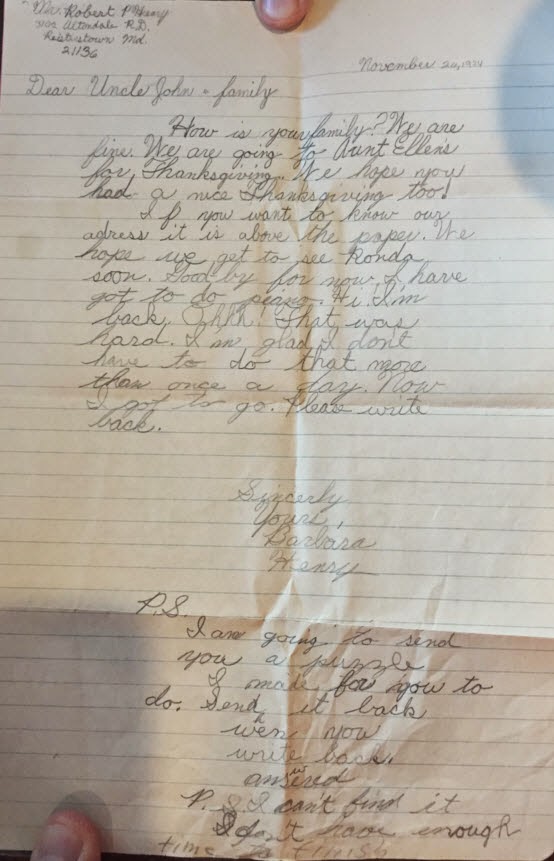 Mr. Robert P Henry
3102 Altendale R.D.
Reisterstown Md.
21136
November 24, 1974
Dear Uncle John & family
How is your family? We are
fine. We are going to Aunt Ellens
for Thanksgiving. We hope you
had a nice Thanksgiving too!
If you want to know our
adress it is above the paper. We
hope we get to see Ronda
soon. Good by for now I have
got to do piano. Hi. I'm
back. Ohhh! That was
hard. I'm glad I dont
have to do that more
than once a day. Now
I got to go. Please write
back.
Sincerly
Yours,
Barbara
Henry
P.S.
I am going to send
you a puzzle
I made for you to
do. Send it back
when you
write back.
answered
P.S. I can't find it
I don't have enough
time to finish